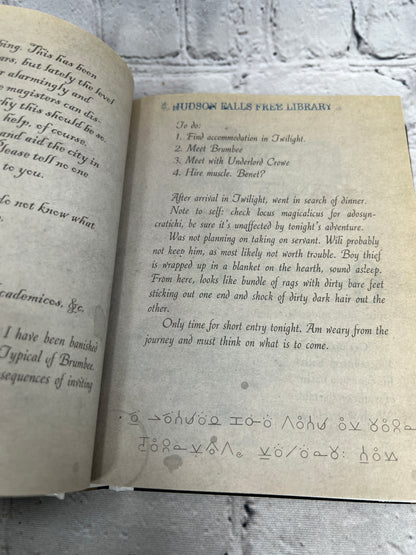 hing. This has been
ars, but lately the level
r alarmingly and
e magistors can dis-
hy this should be so.
help, of course.
and aid the city in
Please tell no one
to you.
do not know what
cademicos, &c.
I have been banished
Typical of Brumbee.
sequences of inviting
HUDSON FALLS FREE LIBRARY
To do:
1. Find accommodation in Twilight.
2. Meet Brumbee
3. Meet with Underlord Crowe
4. Hire muscle. Benet?
After arrival in Twilight, went in search of dinner.
Note to self: check locus magicalicus for adosyn-
cratichi, be sure it's unaffected by tonight's adventure.
Was not planning on taking on servant. Will probably
not keep him, as most likely not worth trouble. Boy thief
is wrapped up in a blanket on the hearth, sound asleep.
From here, looks like bundle of rags with dirty bare feet
sticking out one end and shock of dirty dark hair out the
other.
Only time for short entry tonight. Am weary from the
journey and must think on what is to come.